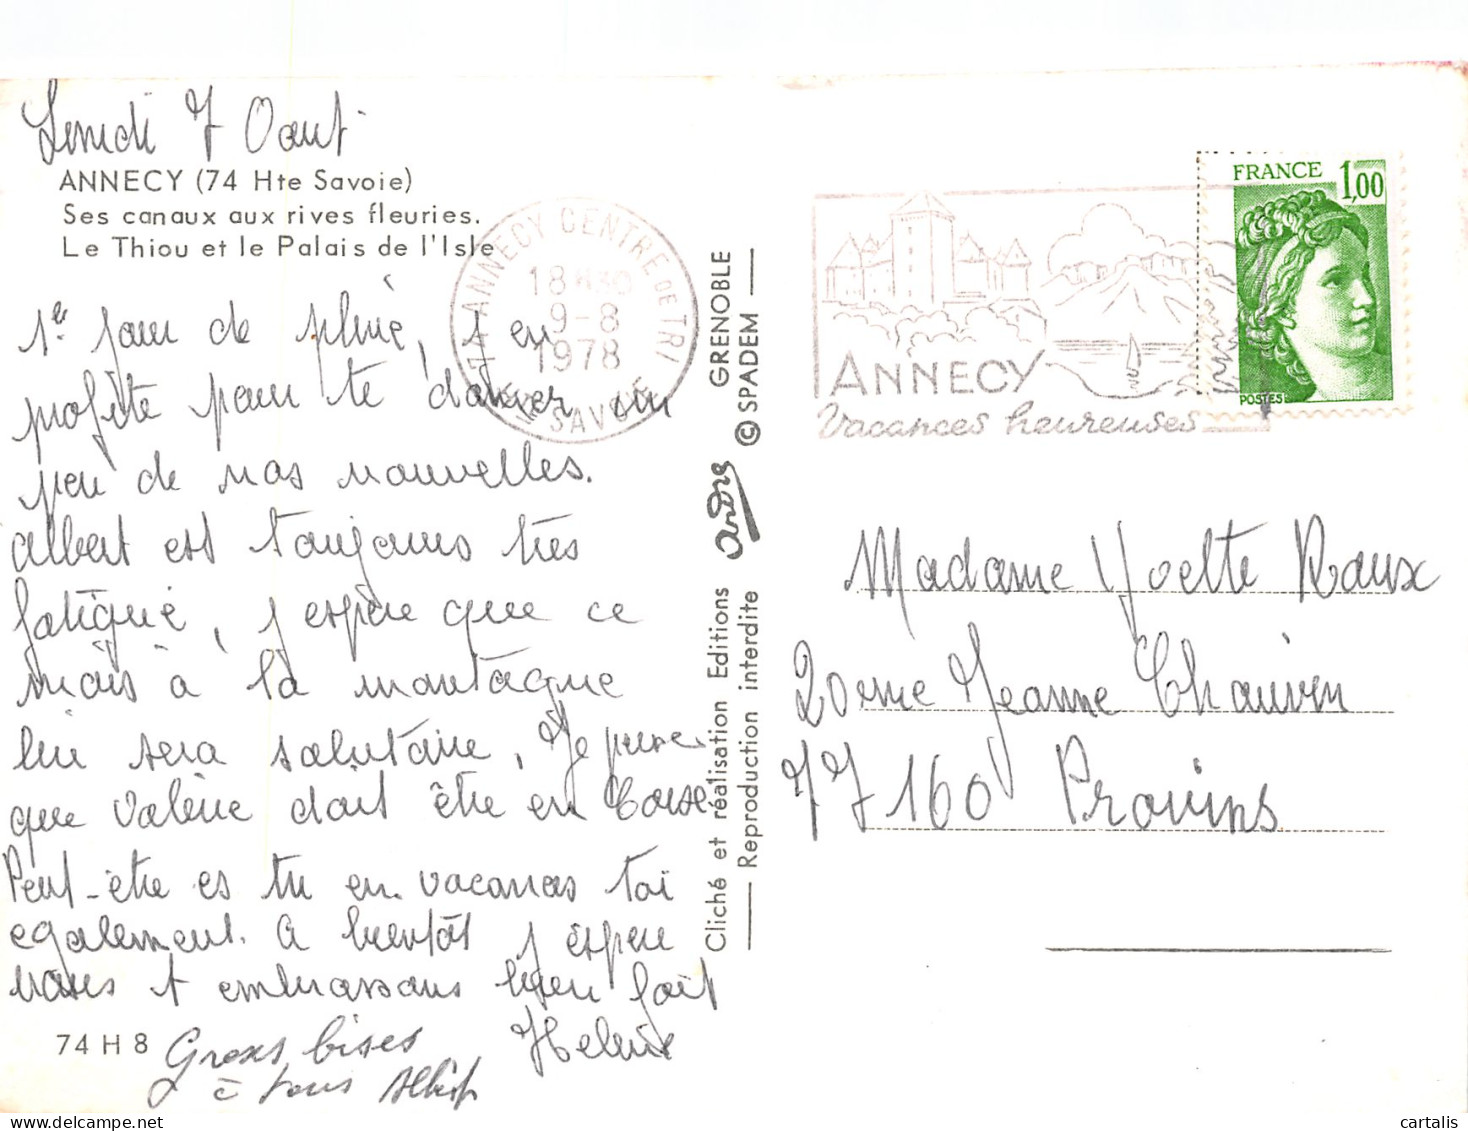 Lundi 7 Aout
ANNECY (74 Hte Savoie)
Ses canaux aux rives fleuries.
Le Thiou et le Palais de l'Isle
1e jour de pluie, j en
profite pour te donner un
peu de nos nouvelles.
Albert est toujours très
fatigué, j espère que ce
mois à la montagne
lui sera salutaire, Je pense
que Valérie doit être en Corse
Peut-être es tu en vacances toi
egalement. A bientôt j espère
nous t embrassons bien fort
Helène
74 H 8
Gross bises
à tous Albert
74 ANNECY CENTRE DE TRI
18 H30
9-8
1978
HTE SAVOIE
GRENOBLE
© SPADEM
André
Cliché et réalisation Editions
Reproduction interdite
ANNECY
Vacances heureuses
FRANCE 1,00
POSTES
Madame Yvette Raux
20 rue Jeanne Chauvin
77160 Provins
cartalis